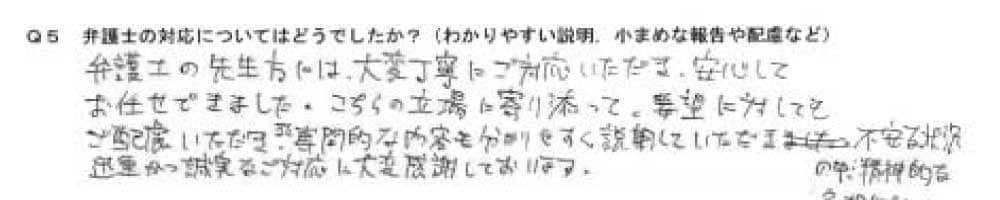 Q5 弁護士の対応についてはどうでしたか?(わかりやすい説明,小まめな報告や配慮など)
弁護士の先生方には、大変丁寧にご対応いただき、安心して
お任せできました。こちらの立場に寄り添って、要望に対しても
ご配慮いただき 専門的な内容も分かりやすく説明していただきました 不安な状況
迅速かつ誠実なご対応に大変感謝しております。
の中、精神的な